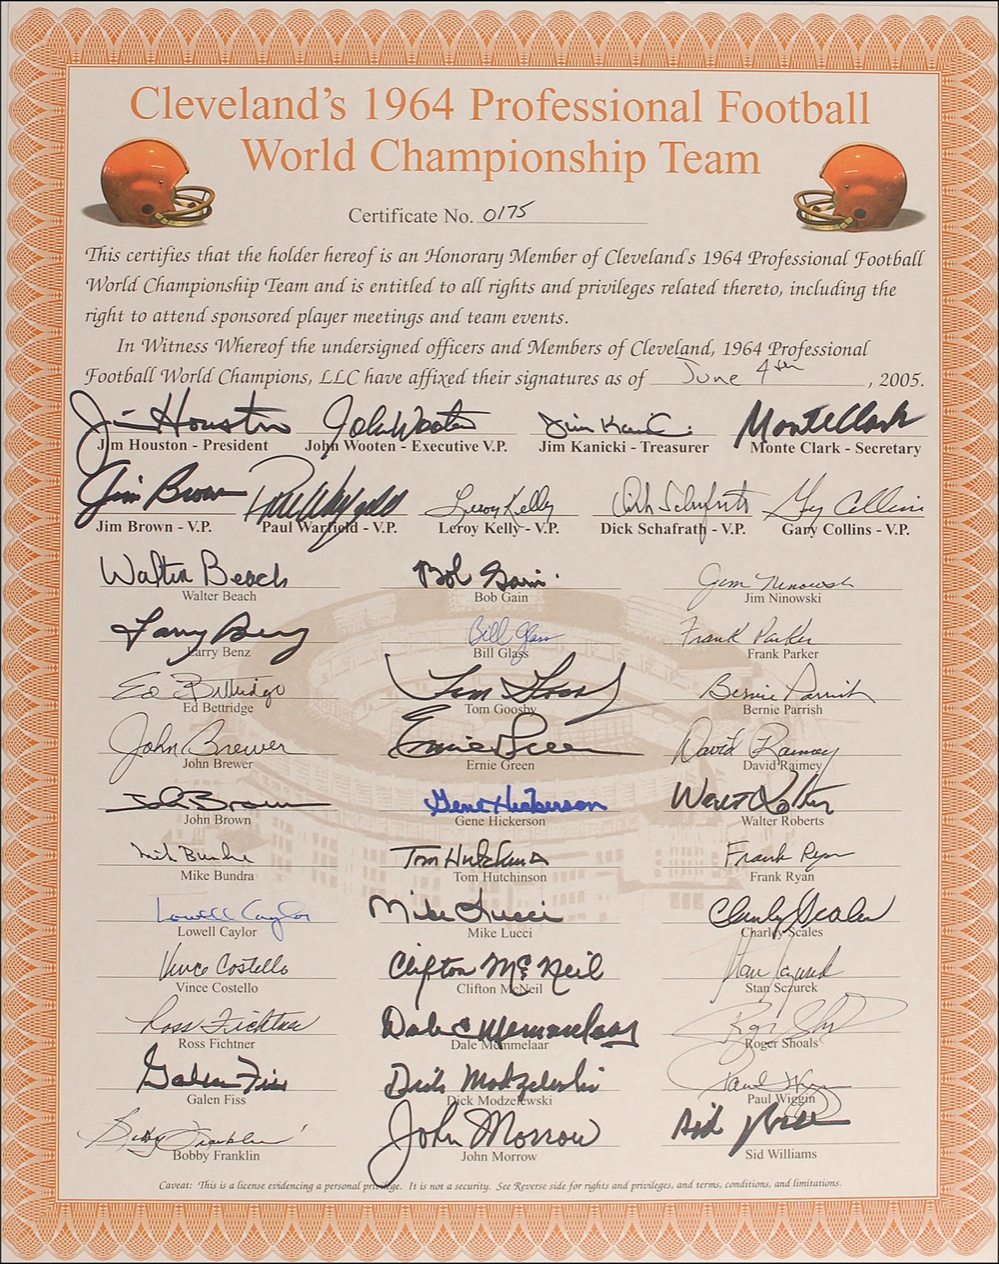 Cleveland's 1964 Professional Football
World Championship Team
Certificate No. 0175
This certifies that the holder hereof is an Honorary Member of Cleveland's 1964 Professional Football
World Championship Team and is entitled to all rights and privileges related thereto, including the
right to attend sponsored player meetings and team events.
In Witness Whereof the undersigned officers and Members of Cleveland, 1964 Professional
Football World Champions, LLC have affixed their signatures as of June 4th, 2005.
Jim Houston John Wooten Jim Kanicki Monte Clark
Jim Houston - President John Wooten - Executive V.P. Jim Kanicki - Treasurer Monte Clark - Secretary
Jim Brown Paul Warfield Leroy Kelly Dick Schafrath Gary Collins
Jim Brown - V.P. Paul Warfield - V.P. Leroy Kelly - V.P. Dick Schafrath - V.P. Gary Collins - V.P.
Walter Beach Bob Gain Jim Ninowski
Walter Beach Bob Gain Jim Ninowski
Larry Benz Bill Glass Frank Parker
Larry Benz Bill Glass Frank Parker
Ed Bettridge Tom Goosby Bernie Parrish
Ed Bettridge Tom Goosby Bernie Parrish
John Brewer Ernie Green David Raimey
John Brewer Ernie Green David Raimey
John Brown Gene Hickerson Walt Roberts
John Brown Gene Hickerson Walter Roberts
Mike Bundra Tom Hutchinson Frank Ryan
Mike Bundra Tom Hutchinson Frank Ryan
Lowell Caylor Mike Lucci Charley Scales
Lowell Caylor Mike Lucci Charley Scales
Vince Costello Clifton McNeil Stan Sczurek
Vince Costello Clifton McNeil Stan Sczurek
Ross Fichtner Dale Memmelaar Roger Shoals
Ross Fichtner Dale Memmelaar Roger Shoals
Galen Fiss Dick Modzelewski Paul Wiggin
Galen Fiss Dick Modzelewski Paul Wiggin
Bobby Franklin John Morrow Sid Williams
Bobby Franklin John Morrow Sid Williams
Caveat: This is a license evidencing a personal privilege. It is not a security. See Reverse side for rights and privileges, and terms, conditions, and limitations.